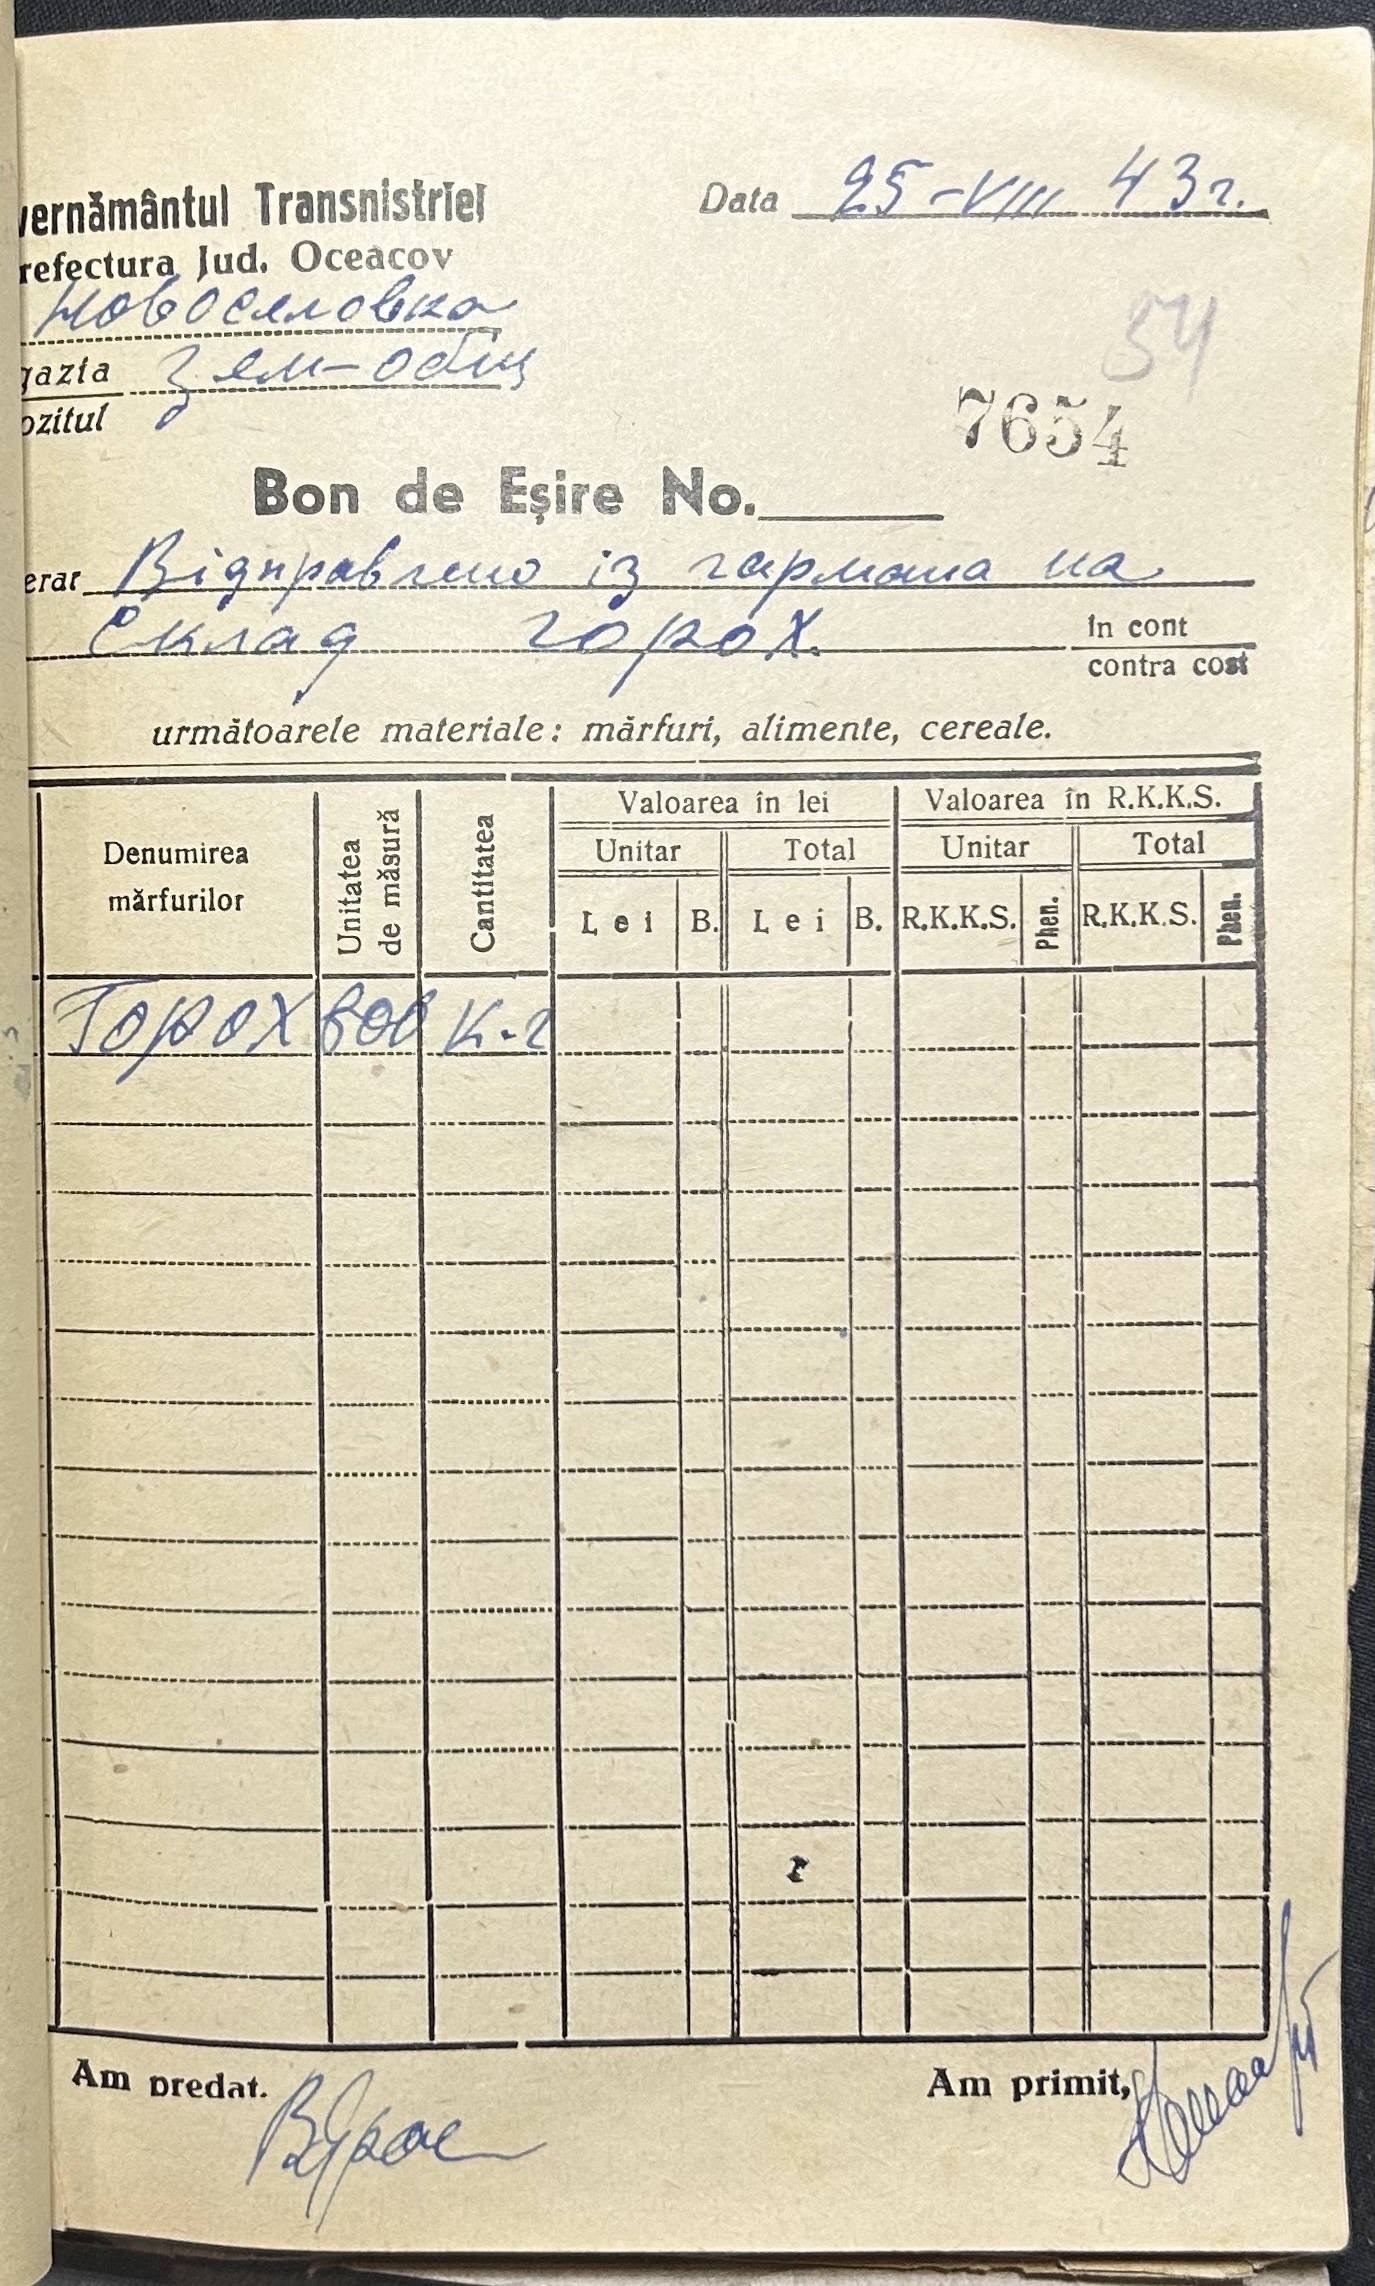 vernământul Transnistriei
refectura Jud. Oceacov
Новоселовка
gazia Зем-общ
ozitul
Data 25-VIII 43 г.
54
7654
Bon de Eșire No.
erat Відправлено із гармана на
Склад горох.
în cont
contra cost
următoarele materiale: mărfuri, alimente, cereale.
Denumirea mărfurilor
Unitatea de măsură
Cantitatea
Valoarea în lei
Valoarea în R.K.K.S.
Unitar Total Unitar Total
Lei B. Lei B. R.K.K.S. Phen. R.K.K.S. Phen.
Горох 800 к-г
Am predat.
Am primit,